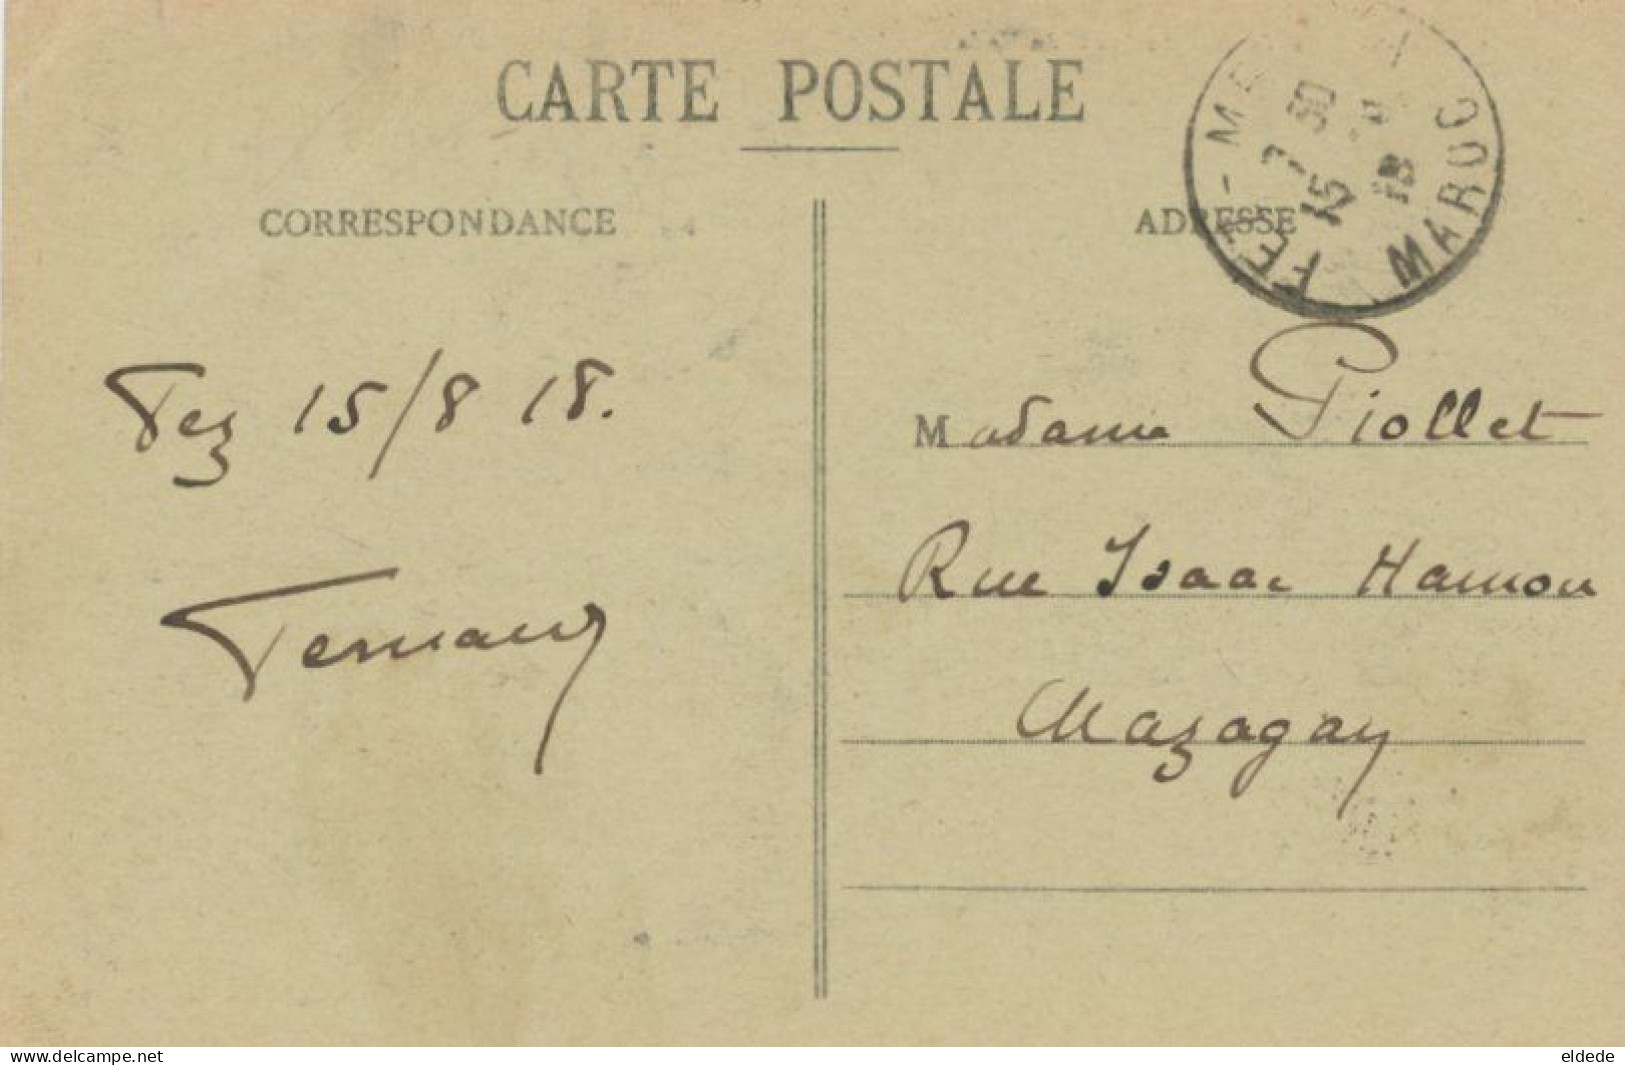 CARTE POSTALE
CORRESPONDANCE
ADRESSE
FEZ - ME
7 30
15
18
MAROC
Fez 15/8 18.
Fernand
Madame Piollet
Rue Isaac Hamou
Mazagan
www.delcampe.net
eldede